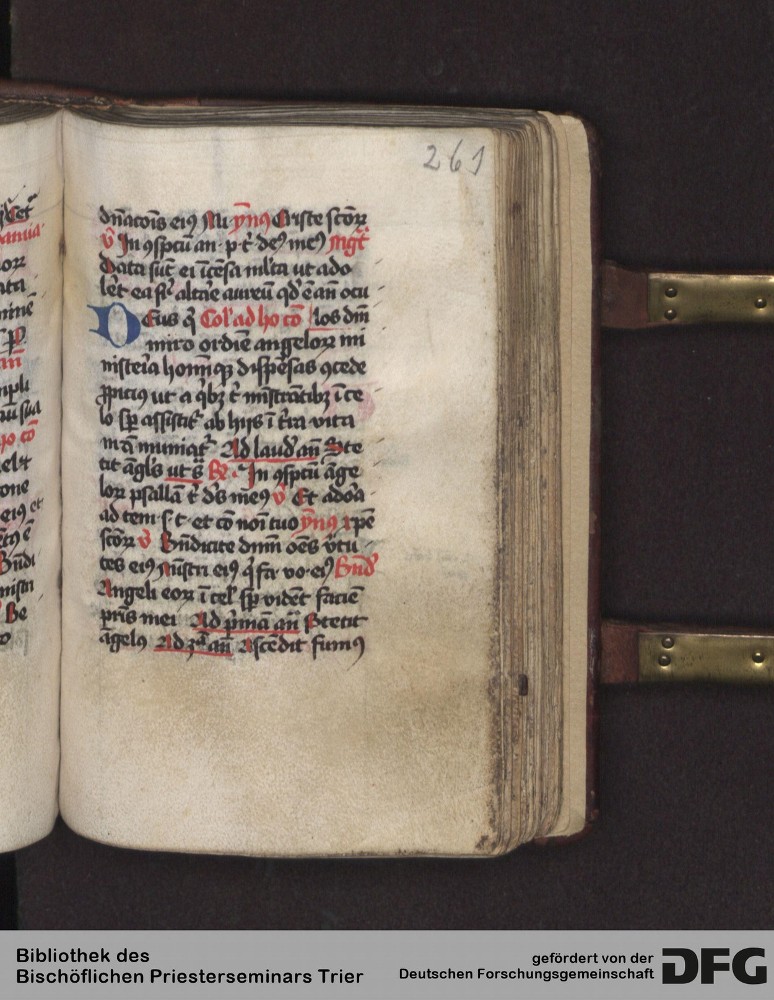 261
dnāconis eiꝰ Nu ymꝰ Criste scōꝝ
v̄ In ꝯspectu an· p·t· deꝰ meꝰ mgt̄
Data sūt ei īcēsa mlta ut ado
lēt ea sr̄ altare aureū qd̄ ē an̄ ocu
Deus q̄ Coll' ad ho cō los dn̄i
miro ordīe angeloꝝ mi
nisteria hom̄iqꝫ dispēsas ꝯcede
ꝓpiciꝰ ut a qͥbꝫ t̄ mīstrātibꝫ ī ce
lo sp̄ assistit' ab hijs ī t̄ra vita
nr̄a muniat' Ad laud' an̄ Ste
tit āgls ut s̄ R̄ In ꝯspectu āge
loꝝ psallā t̄ ds meꝰ v̄ Et adora
ad tem· s· t· et cō noī tuo ymꝰ xp̄e
scōꝝ v̄ Bn̄dicite dnm̄ oēs v̄tu
tes eiꝰ Ministri eiꝰ q̄ fa· vo· eiꝰ Bn̄d'
Angeli eoꝝ ī cel' sp̄ vidēt faciē
pr̄is mei Ad p̄mā an̄ Stetit
āgelꝰ Ad 3ᵃ an̄ Ascēdit fumꝰ
Bibliothek des
Bischöflichen Priesterseminars Trier
gefördert von der
Deutschen Forschungsgemeinschaft
DFG